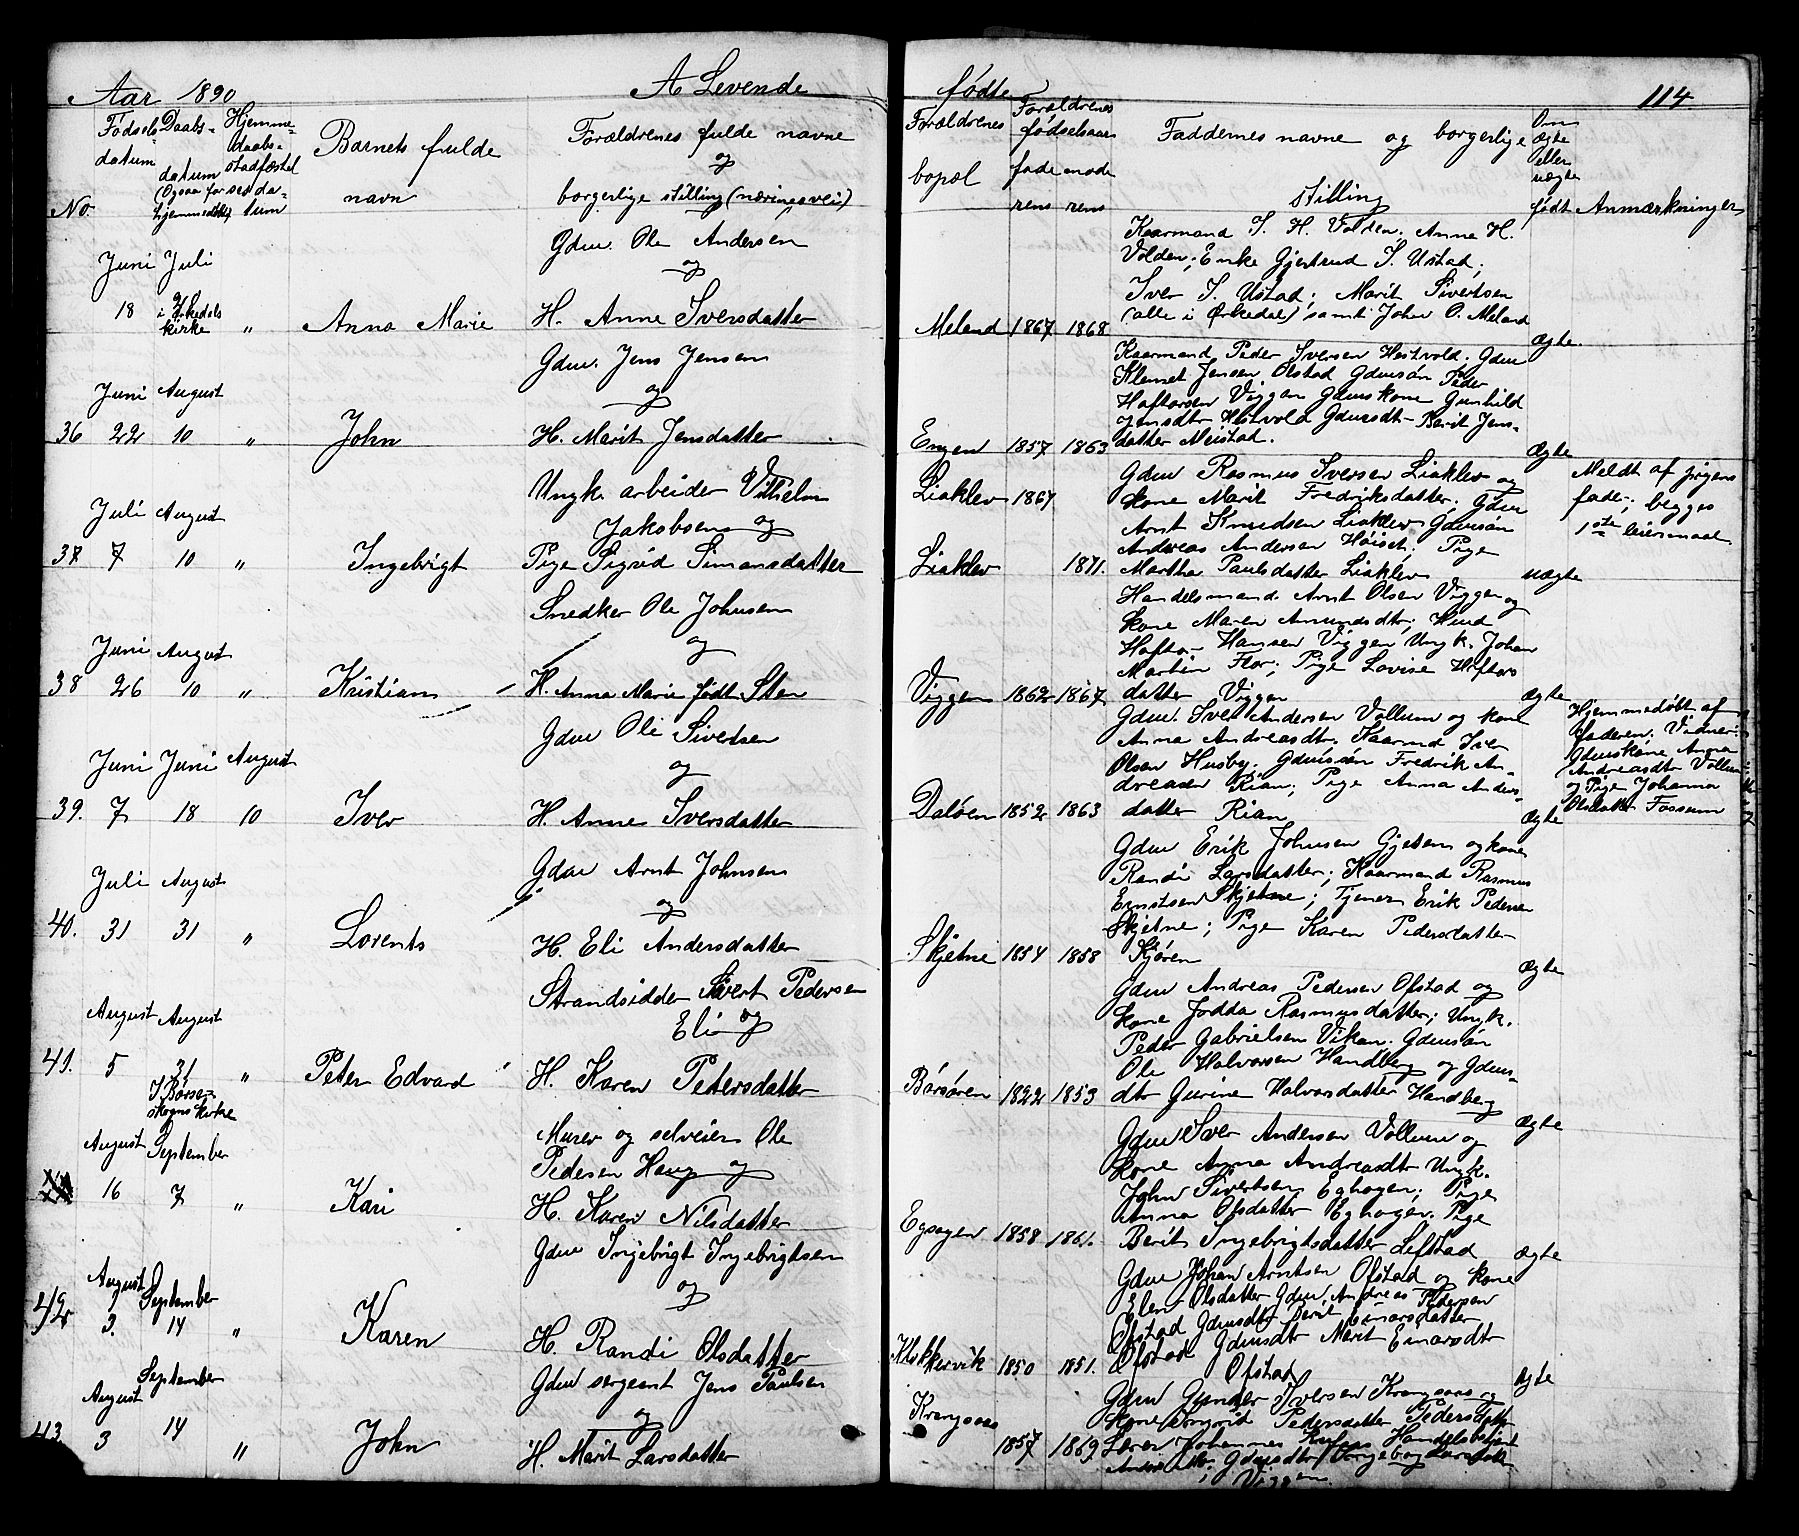 Aar 1890
A Levende
No.
Fødsels
datum
Daabs-
datum
(Ogsaa for
hjemmedøbt)
Hjemme-
daabs-
stadfæstel
ses da-
tum
Barnets fulde
navn
Forældrenes fulde navne
og
borgerlige stilling (næringsvei)
Juni Juli
18
i Ørkedals
kirke
"
Anna Marie
Gdm. Ole Andersen
og
H. Anne Iversdatter
Juni August
36 22 10 "
John
Gdm. Jens Jensen
og
H. Marit Jensdatter
Juli August
37 7 10 "
Ingebrigt
Ungk. arbeider Vilhelm
Jakobsen og
Pige Sigrid Simonsdatter
Juni August
38 26 10 "
Kristian
Snedker Ole Johnsen
og
H. Anna Marie født Sten
Juni Juni August
39. 7 18 10
Iver
Gdm Ole Sivertsen
og
H. Anne Iversdatter
Juli August
40. 31 31 "
Lorents
Gdm Arnt Johnsen
og
H. Eli Andersdatter
August August
41. 5 31 "
I Børse-
skogns kirke
Peter Edvard
Strandsidder Sivert Pedersen
Eli og
H. Karen Petersdatter
August September
16 7 "
Kari
Murer og selveier Ole
Pedersen Haug og
H. Karen Nilsdatter
August September
42 3. 14 "
Karen
Gdm Ingebrigt Ingebrigtsen
og
H. Randi Olsdatter
August September
43 3 14 "
John
Gdm sergeant Jens Paulsen
og
H. Marit Larsdatter
fødte
114
Forældrenes
bopæl
Forældrenes
fødselsaar
fade mode
rens rens
Faddernes navne og borgerlige
stilling
Om
ægte
eller
uægte
født
Anmærkninger
Meland 1867 1868
Kaarmand I. H. Volden. Anne H.
Volden; Enke Gjertrud I. Ustad;
Iver I. Ustad; Marit Sivertsen
(alle i Ørkedal) samt John O. Meland
Ægte
Engen 1857 1863
Kaarmand Peder Iversen Hestvold. Gdm
Klemet Jensen Olstad Gdmsøn Peder
Haftorsen Viggen Gdmskone Gunhild
Jensdtr Hestvold Gdmsdtr Berit Jens-
datter Meistad.
Ægte
Liaklev 1867
Liaklev 1871.
Gdm Rasmus Iversen Liaklev og
kone Marit Fredriksdatter. Gdm
Arnt Knudsen Liaklev Gdmsøn
Andreas Andersen Høiset; Pige
Martha Paulsdatter Liaklev
uægte
Meldt af pigens
fader; begges
1ste leiermaal
Viggen 1862 1867
Handelsmand Arnt Olsen Viggen og
kone Maren Amundsdtr;
Haftor Hansen Viggen Ungk. Johan
Martin Flor; Pige Lovise Haftors
datter Viggen
Ægte
Daløen 1852 1863
Gdm. Iver Andersen Vollum og kone
Anna Andreasdtr. Kaarmd Iver
Olsen Husby. Gdmsøn Fredrik An-
dreasen Rian; Pige Anna Anders-
datter Rian
Ægte
Hjemmedøbt af
faderen. Vidner:
Gdmskone Anna
Andreasdtr Vollum
og Pige Johanna
Olsdatter Fossum
Skjetne 1854 1858
Gdm Erik Johnsen Gjeten og kone
Randi Larsdatter; Kaarmand Rasmus
Erntsen Skjetne; Tjener Erik Pedersen
Skjetne; Pige Karen Pedersdatter
Kjøren
Ægte
Børsøren 1822 1853
Gdm Andreas Pedersen Ofstad og
kone Jodda Rasmusdatter; Ungk.
Peder Gabrielsen Vikan. Gdmsøn
Ole Halvorsen Handberg og Gdms-
dtr Gurine Halvorsdatter Handberg
Ægte
Eghagen 1858 1861.
Gdm Iver Andersen Vollum og
kone Anna Andreasdtr Ungk.
John Sivertsen Eghagen; Pige
Anna Olsdatter Eghagen. Pige
Berit Ingebrigtsdatter Leftstad
Ægte
Klokkervik 1850 1851.
Gdm Johan Arntsen Ofstad og kone
Elen Olsdatter Gdm. Andreas Pedersen
Ofstad Gdmsdtr Berit Einarsdatter
Ofstad Gdmsdtr Marit Einarsdtr
Ofstad
Ægte
Krangsaas
1857 1869
Gdm Gunder Iversen Krangsaas og
kone Ingrid Pedersdatter
Lærer Johannes Handelsbetjent
Gdmsdtr Ingeborg Larsdatter
Viggen